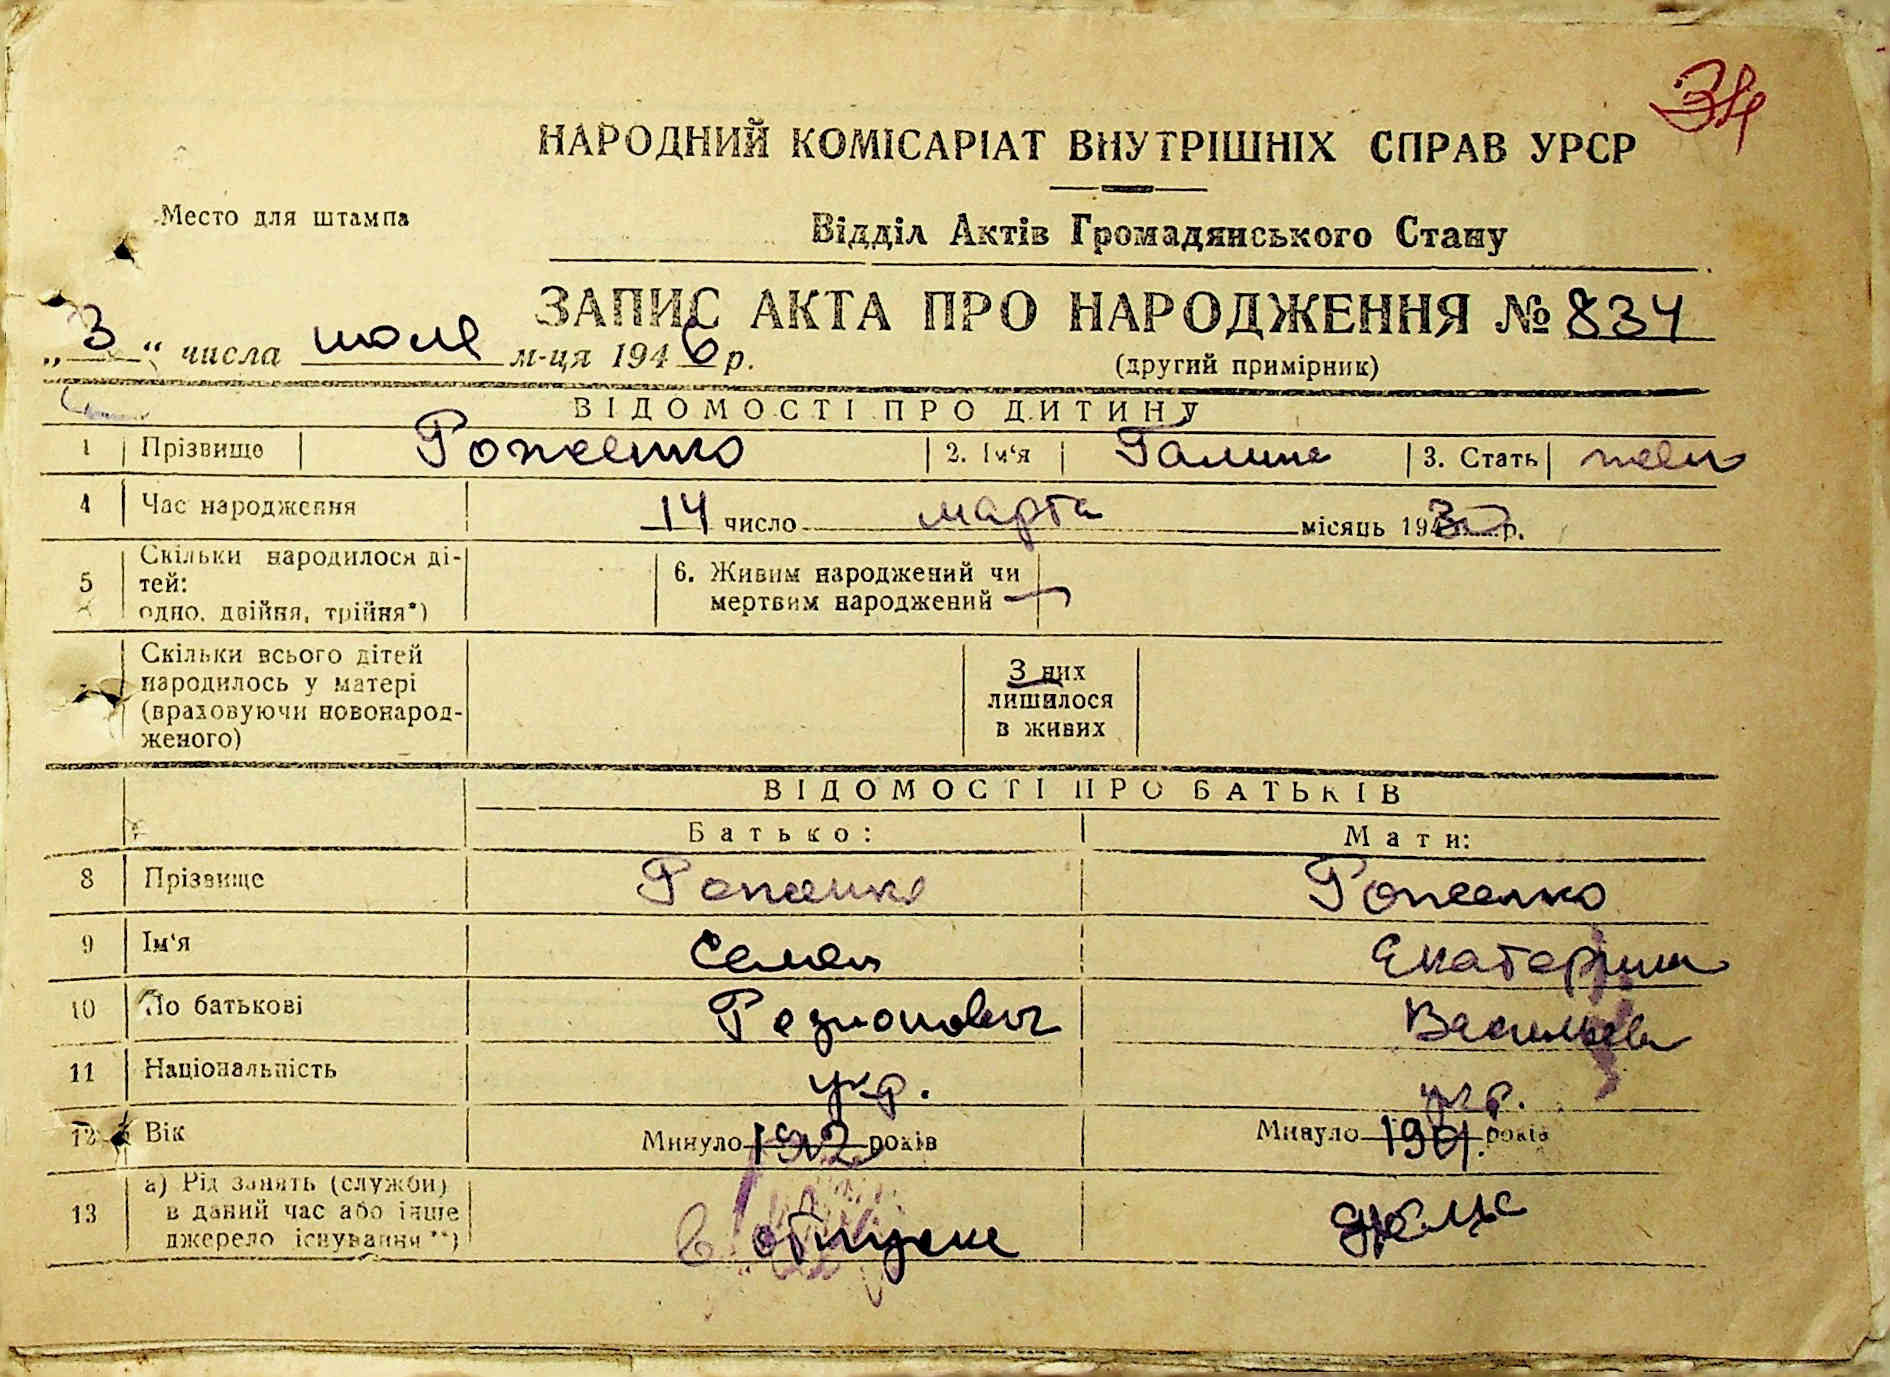 34
НАРОДНИЙ КОМІСАРІАТ ВНУТРІШНІХ СПРАВ УРСР
Место для штампа
Відділ Актів Громадянського Стану
ЗАПИС АКТА ПРО НАРОДЖЕННЯ № 834
„3“ числа июля м-ця 1946 р.
(другий примірник)
ВІДОМОСТІ ПРО ДИТИНУ
1 Прізвище Роженко 2. Ім'я Галина 3. Стать жен
4 Час народження 14 число марта місяць 193 р.
5 Скільки народилося ді-
тей:
одно, двійня, трійня*)
6. Живим народжений чи
мертвим народжений
Скільки всього дітей
народилось у матері
(враховуючи новонарод-
женого)
З них
лишилося
в живих
ВІДОМОСТІ ПРО БАТЬКІВ
Батько: Мати:
8 Прізвище Роженко Роженко
9 Ім'я Семен Екатерина
10 По батькові Родионович Васильев
11 Національність укр. укр.
12 Вік Минуло 1902 років Минуло 1901. років
13 а) Рід занять (служби)
в даний час або інше
джерело існування **)
в отпуске